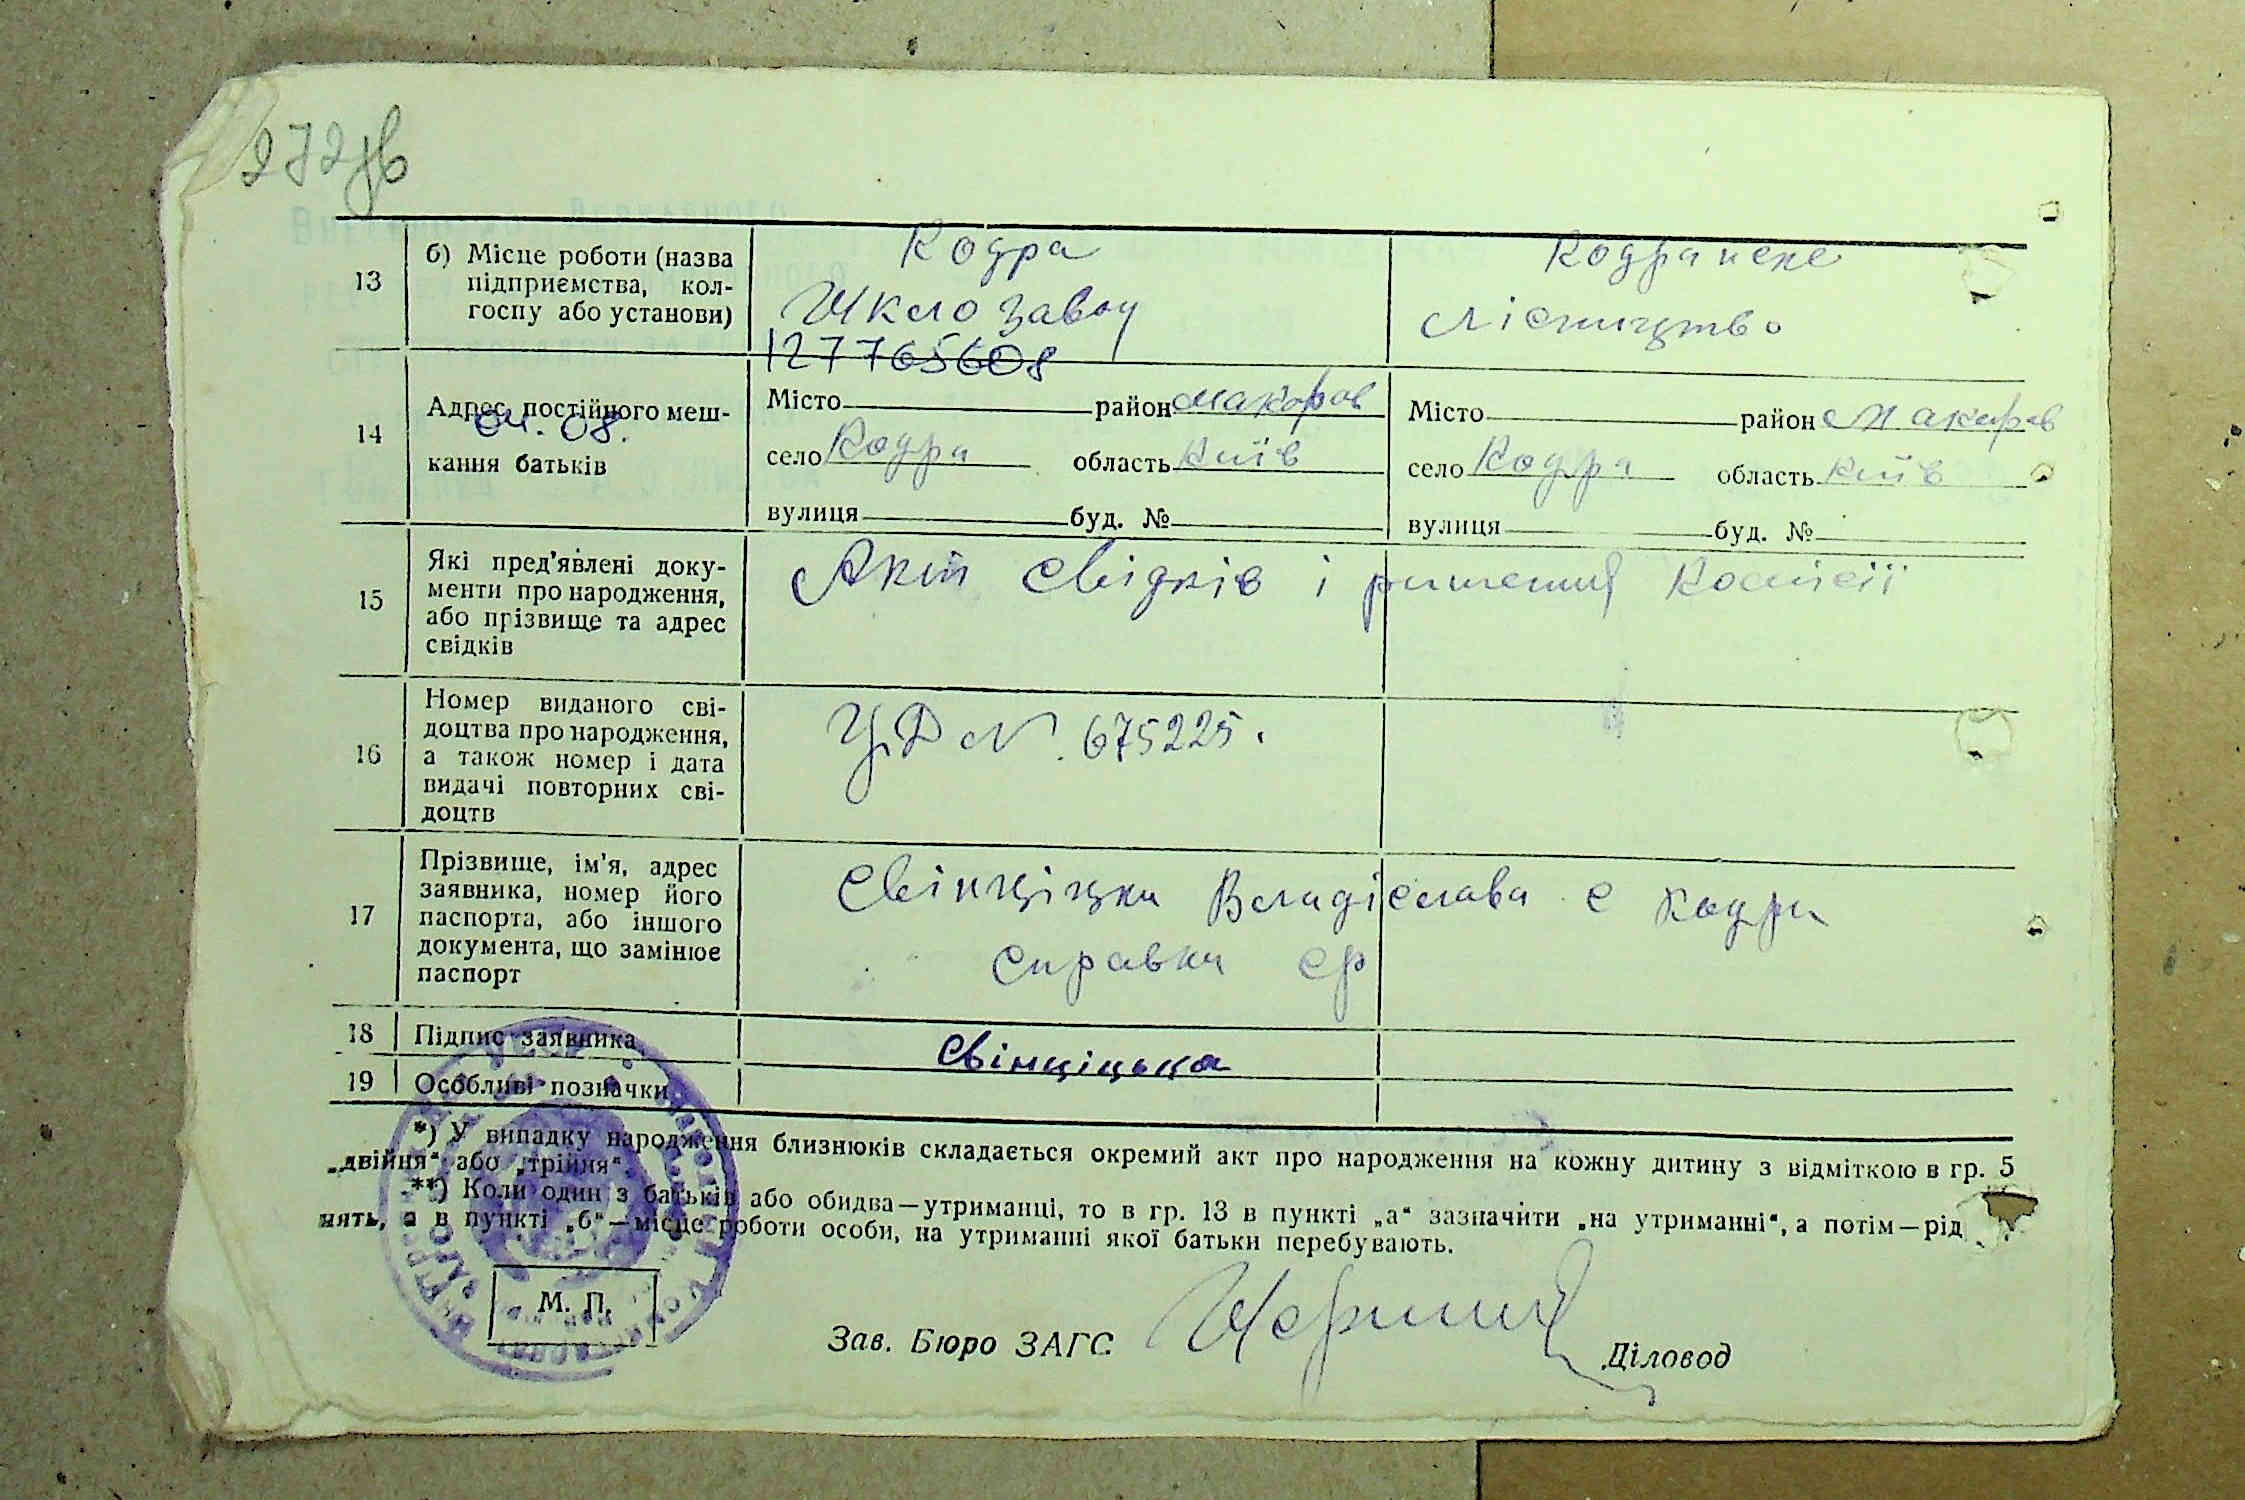 272зв
13
б) Місце роботи (назва
підприємства, кол-
госпу або установи)
Кодра
Шклозавод
Кодранске
лісництво
127765608
04.08.
14
Адрес постійного меш-
кання батьків
Місто район Макаров
село Кодра область Київ
вулиця буд. №
Місто район Макаров
село Кодра область Київ
вулиця буд. №
15
Які пред'явлені доку-
менти про народження,
або прізвище та адрес
свідків
Акт свідків і рішення Комісії
16
Номер виданого сві-
доцтва про народження,
а також номер і дата
видачі повторних сві-
доцтв
N. 675225.
17
Прізвище, ім'я, адрес
заявника, номер його
паспорта, або іншого
документа, що замінює
паспорт
Свінціцка Владіслава с Кодра
справка ср
18
Підпис заявника
Свінціцька
19
Особливі позначки
*) У випадку народження близнюків складається окремий акт про народження на кожну дитину з відміткою в гр. 5
„двійня“ або „трійня“.
**) Коли один з батьків або обидва—утриманці, то в гр. 13 в пункті „а“ зазначити „на утриманні“, а потім—рід
нять, а в пункті „б“—місце роботи особи, на утриманні якої батьки перебувають.
М. П.
Зав. Бюро ЗАГС
Діловод